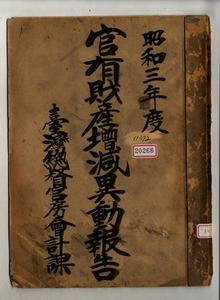 昭和三年度
官有財産增減異動報告
臺灣總督官房會計課
11372
20268